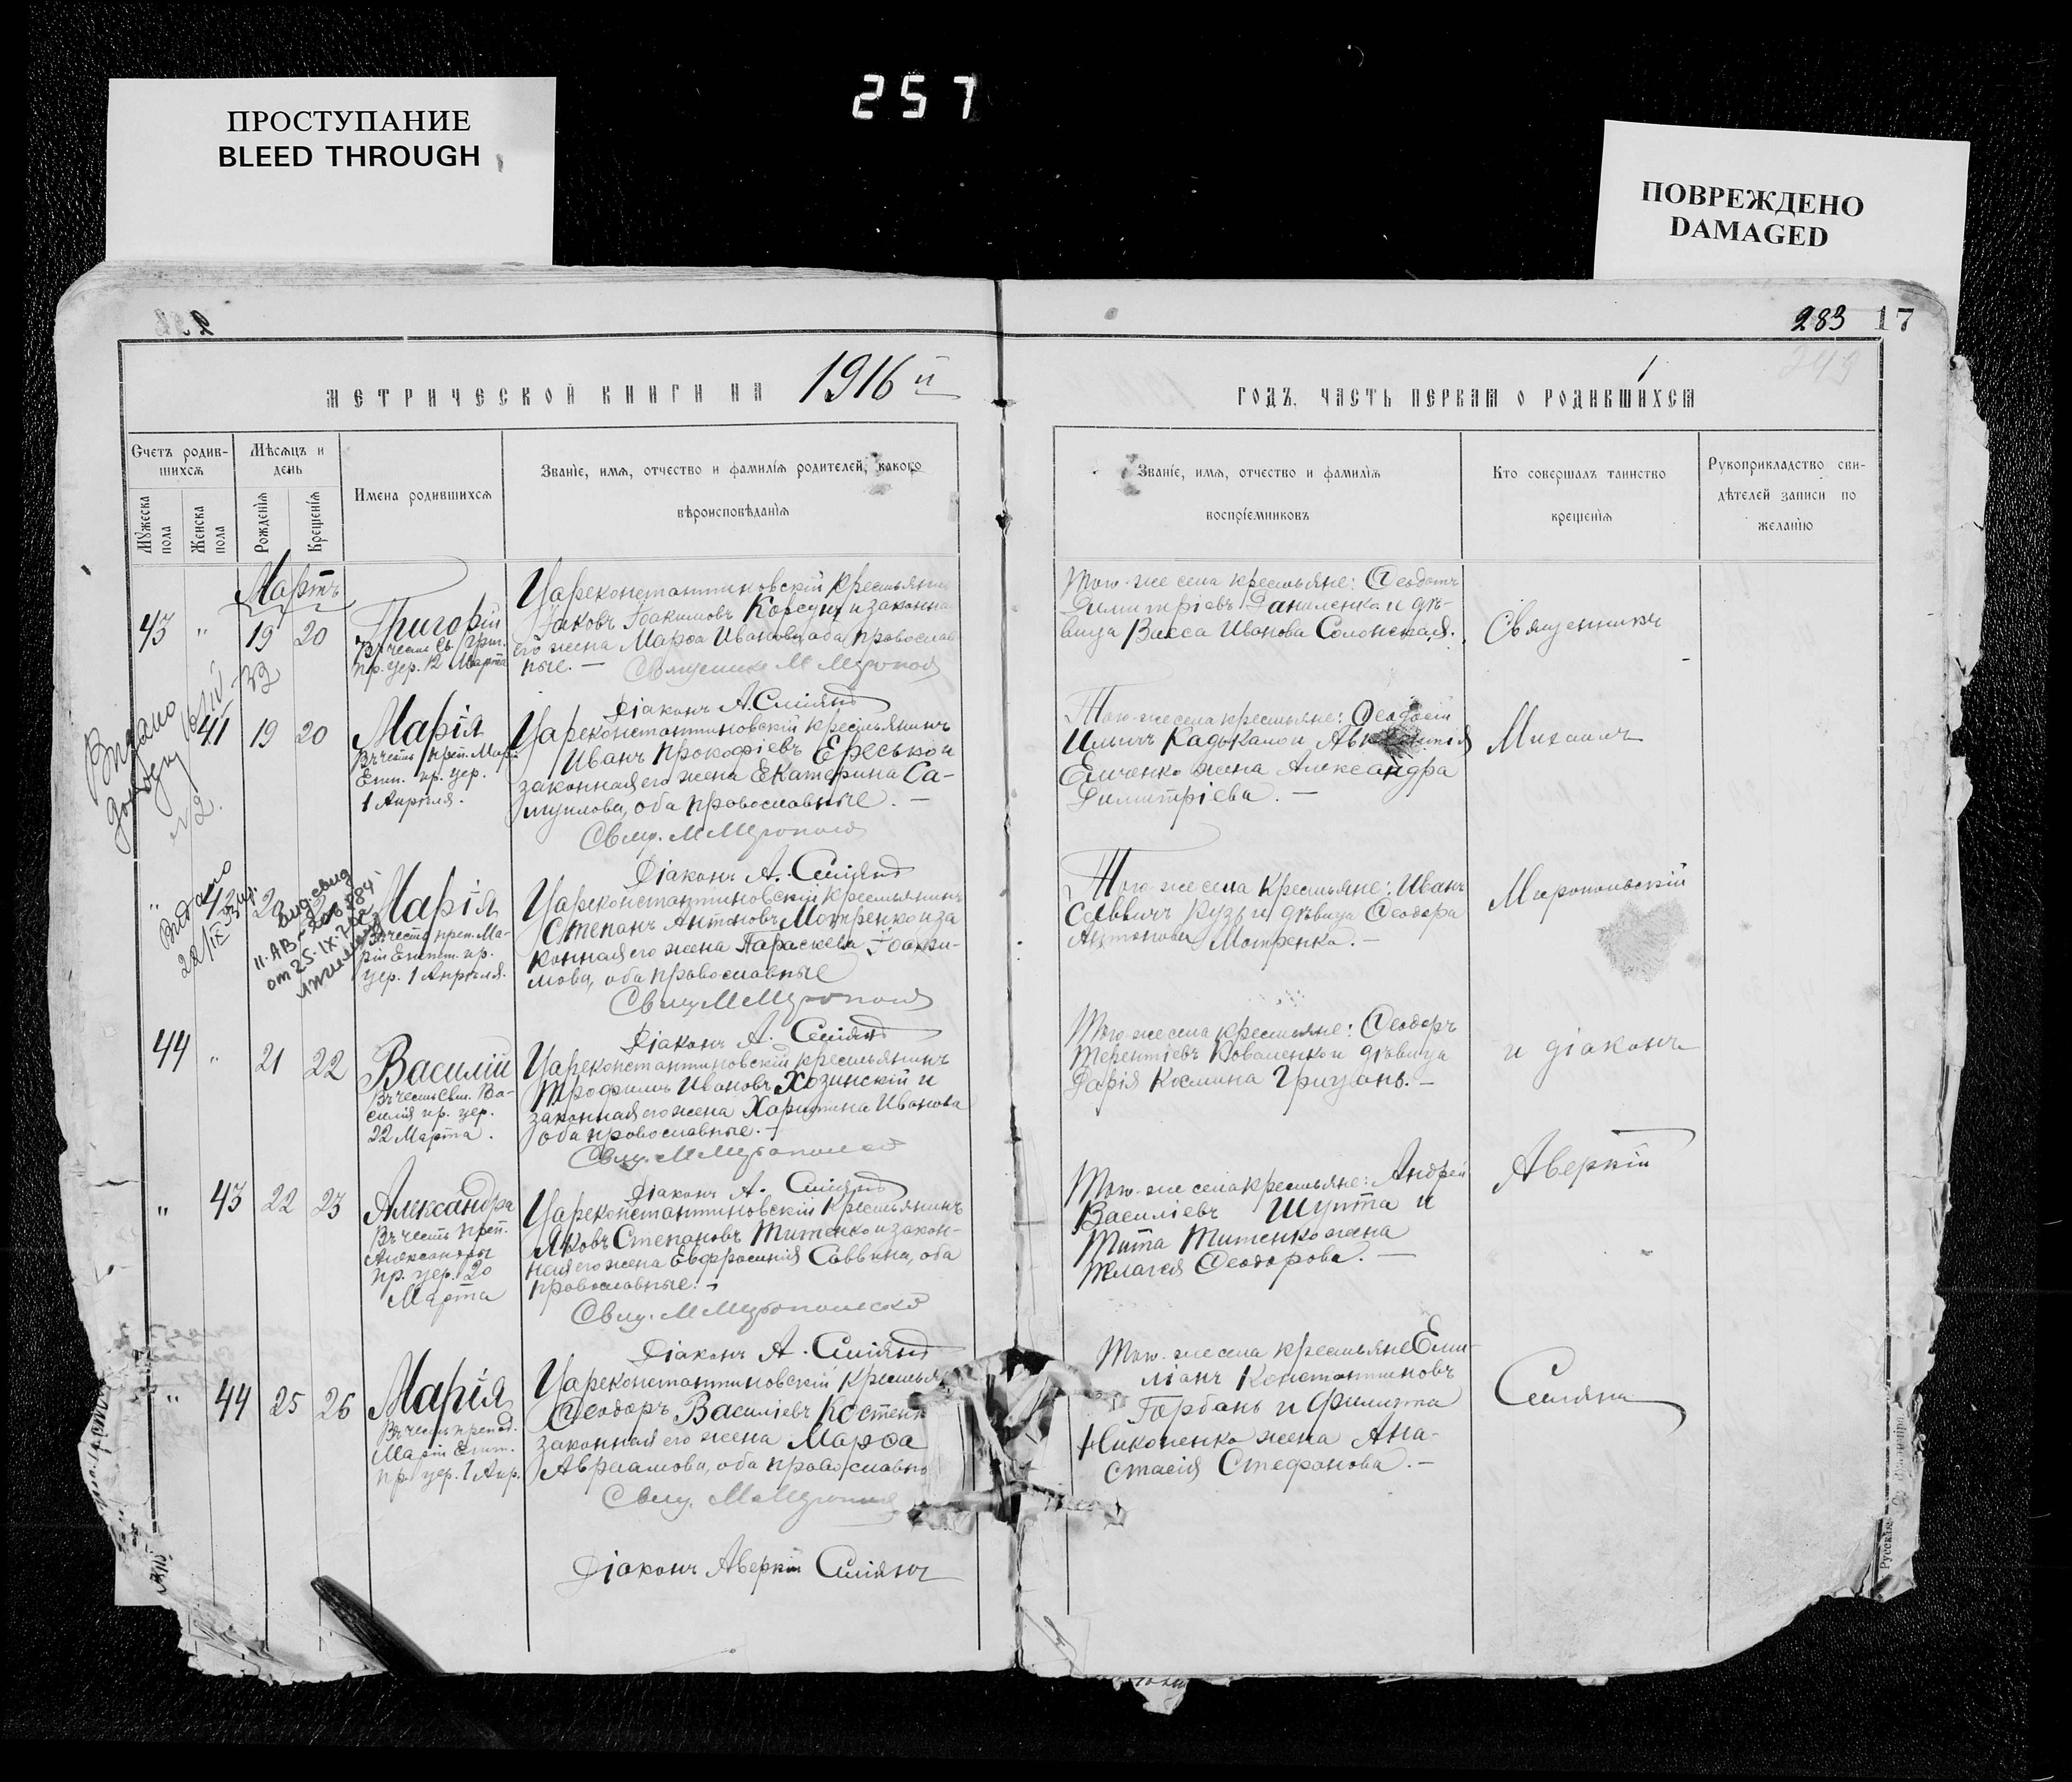 257
ПРОСТУПАНИЕ
BLEED THROUGH
ПОВРЕЖДЕНО
DAMAGED
283 17
МЕТРИЧЕСКОЙ КНИГИ НА 1916й
ГОДЪ, ЧАСТЬ ПЕРВАЯ О РОДИВШИХСЯ
Счетъ родив-
шихся
Мужеска пола
Женска пола
Мѣсяцъ и
день
Рожденія
Крещенія
Имена родившихся
Званіе, имя, отчество и фамилія родителей, какого
вѣроисповѣданія
Званіе, имя, отчество и фамилія
воспріемниковъ
Кто совершалъ таинство
крещенія
Рукоприкладство сви-
дѣтелей записи по
желанію
Мартъ
43 " 19 20
Григорій
Въ честь Св. Григ.
пр. цер. 12 Марта
Цареконстантиновскій крестьянин
Іаковъ Іоакимовъ Корсунъ и законна
его жена Марѳа Иванова, оба православ-
ные. —
Діаконъ А. Сміянъ
Того-же села крестьяне: Ѳеодотъ
Димитріевъ Даниленко и дѣ-
вица Васса Иванова Солонская.
Священникъ
Выдано
41 19 20
Марія
Въ честь преп. Маріи
Егип. пр. цер.
1 Апрѣля.
Цареконстантиновскій крестьянинъ
Иванъ Прокофіевъ Ересько и
законная его жена Екатерина Са-
муилова, оба православные. —
Діаконъ А. Сміянъ
Того-же села крестьяне: Ѳеодосій
Ильичъ и
Емченко жена Александра
Димитріева. —
Михаилъ
" 42
Выдано
22/IX
от 25.IX.
Марія
Въ честь преп. Ма-
ріи Египт. пр.
цер. 1 Апрѣля.
Цареконстантиновскій крестьянинъ
Степанъ Антоновъ Мотренко и за
конная его жена Параскева Іоаки-
мова, оба православные
Діаконъ А. Сміянъ
Того-же села крестьяне: Иванъ
Саввичъ и дѣвица Ѳеодора
Антонова Мотренко. —
Миропольскій
44 " 21 22
Василій
Въ честь Свм. Ва-
силія пр. цер.
22 Марта.
Цареконстантиновскій крестьянинъ
Трофимъ Ивановъ Хозинскій и
законная его жена Харитина Иванова
оба православные. —
Діаконъ А. Сміянъ
Того-же села крестьяне: Ѳеодоръ
Терентіевъ Коваленко и дѣвица
Дарія Космина Грицань. —
и діаконъ
" 43 22 23
Александра
Въ честь преп.
Александры
пр. цер. 20
Марта
Цареконстантиновскій крестьянинъ
Яковъ Степановъ Титенко и закон-
ная его жена Евфросинія Саввина, оба
православные. —
Діаконъ А. Сміянъ
Того-же села крестьяне: Андрей
Василіевъ Шупта и
Тита Титенко жена
Пелагея Ѳеодорова. —
Аверкій
" 44 25 26
Марія
Въ честь препод.
Маріи Египт.
пр. цер. 1 Апр.
Цареконстантиновскій крестья
Ѳеодоръ Василіевъ Костенк
законная его жена Марѳа
Авраамова, оба православны
Діаконъ Аверкій Сміянъ
Того-же села крестьяне Еми-
ліанъ Константиновъ
Горбань и Филиппа
Никоненко жена Ана-
стасія Стефанова. —
Сміянъ